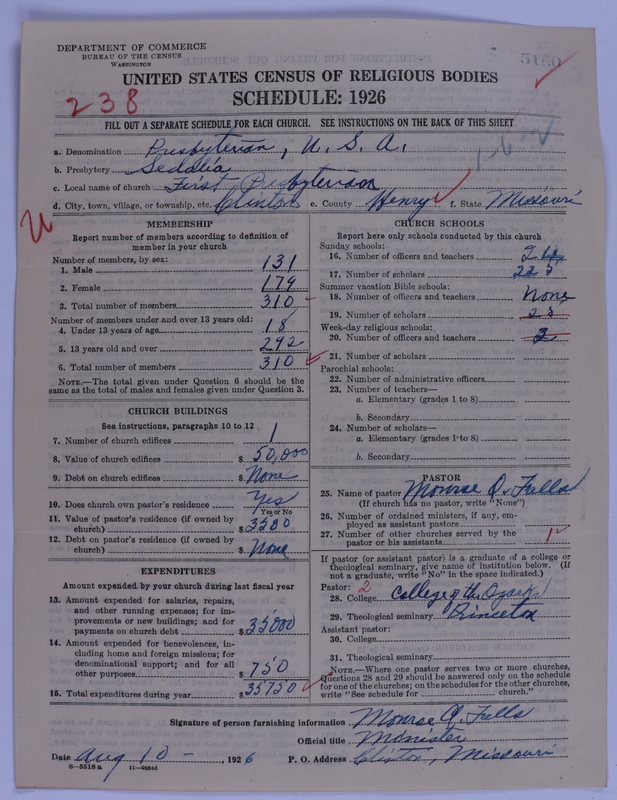 DEPARTMENT OF COMMERCE
BUREAU OF THE CENSUS
WASHINGTON
5160
UNITED STATES CENSUS OF RELIGIOUS BODIES
238
SCHEDULE: 1926
FILL OUT A SEPARATE SCHEDULE FOR EACH CHURCH. SEE INSTRUCTIONS ON THE BACK OF THIS SHEET
a. Denomination Presbyterian, U. S. A.
b. Presbytery Sedalia
c. Local name of church First Presbyterian
d. City, town, village, or township, etc. Clinton e. County Henry f. State Missouri
MEMBERSHIP
Report number of members according to definition of
member in your church
Number of members, by sex:
1. Male 131
2. Female 179
3. Total number of members 310
Number of members under and over 13 years old:
4. Under 13 years of age 18
5. 13 years old and over 292
6. Total number of members 310
NOTE.—The total given under Question 6 should be the
same as the total of males and females given under Question 3.
CHURCH BUILDINGS
See instructions, paragraphs 10 to 12
7. Number of church edifices 1
8. Value of church edifices $ 50,000
9. Debt on church edifices $ None
10. Does church own pastor's residence Yes
Yes or No
11. Value of pastor's residence (if owned by
church) $ 3500
12. Debt on pastor's residence (if owned by
church) $ None
EXPENDITURES
Amount expended by your church during last fiscal year
13. Amount expended for salaries, repairs,
and other running expenses; for im-
provements or new buildings; and for
payments on church debt $ 35000
14. Amount expended for benevolences, in-
cluding home and foreign missions; for
denominational support; and for all
other purposes $ 750
15. Total expenditures during year $ 35750
CHURCH SCHOOLS
Report here only schools conducted by this church
Sunday schools:
16. Number of officers and teachers
17. Number of scholars 225
Summer vacation Bible schools:
18. Number of officers and teachers None
19. Number of scholars
Week-day religious schools:
20. Number of officers and teachers 2
21. Number of scholars
Parochial schools:
22. Number of administrative officers
23. Number of teachers—
a. Elementary (grades 1 to 8)
b. Secondary
24. Number of scholars—
a. Elementary (grades 1 to 8)
b. Secondary
PASTOR
25. Name of pastor Monroe Q. Falls
(If church has no pastor, write "None")
26. Number of ordained ministers, if any, em-
ployed as assistant pastors
27. Number of other churches served by the
pastor or his assistants 1
If pastor (or assistant pastor) is a graduate of a college or
theological seminary, give name of institution below. (If
not a graduate, write "No" in the space indicated.)
Pastor: 2
28. College College of the Ozarks
29. Theological seminary Princeton
Assistant pastor:
30. College
31. Theological seminary
NOTE.—Where one pastor serves two or more churches,
Questions 28 and 29 should be answered only on the schedule
for one of the churches; on the schedules for the other churches,
write "See schedule for church."
Signature of person furnishing information Monroe Q. Falls
Official title Minister
Date Aug 10 -, 1926 P. O. Address Clinton, Missouri
8—5518a 11—9064d